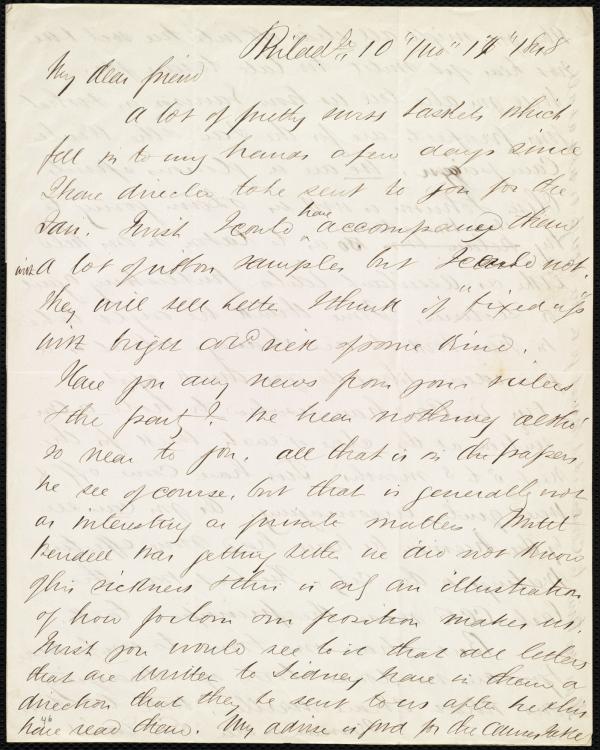 Philad. 10 "mo" 1 " 1848
My dear friend
A lot of pretty baskets which
fell in to my hands a few days since
I have directed to be sent to you for the
Fair. I wish I could have accompanied them
with a lot of ribbon samples but I could not.
They will sell better I think if "fixed up"
with bright cold of some kind.
Have you any news from your sisters
& the party? We hear nothing altho'
so near to you. all that is in the papers
we see of course, but that is generally not
as interesting as private matters. Until
Wendell was getting better we did not know
of his sickness & this is only an illustration
of how forlorn our position makes us.
I wish you would see to it that all letters
that are written to Sidney have in them a
direction that they be sent to us after he & his
have read them. My advise is good for the cause sake